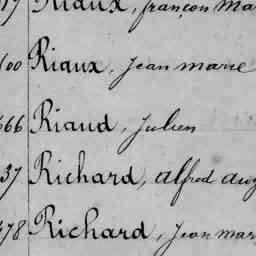 Riaux, françois
00 Riaux, Jean marie
666 Riaud, Julien
37 Richard, alfred
478 Richard, Jean